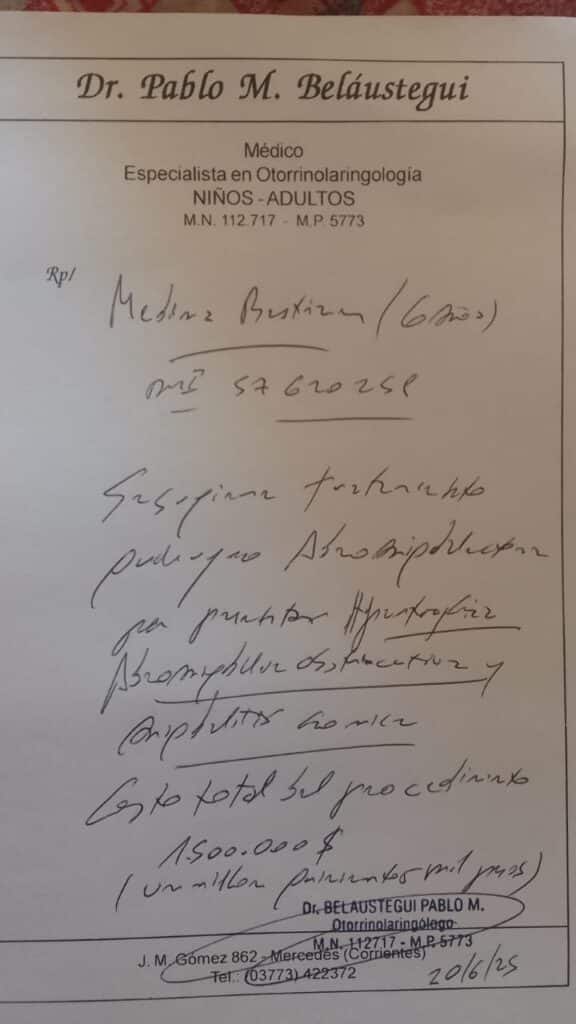 Dr. Pablo M. Beláustegui
Médico
Especialista en Otorrinolaringología
NIÑOS - ADULTOS
M.N. 112.717 - M.P. 5773
Rp/
Medina Bastian (6 años)
DNI 57620258
tratamiento
quirurgico Adenoamigdalectomia
por presentar Hipertrofia
Adenoamigdalar obstructiva y
Amigdalitis cronica
Costo total del procedimiento
1.500.000 $
(un millon quinientos mil pesos)
Dr. BELAUSTEGUI PABLO M.
Otorrinolaringólogo
M.N. 112717 - M.P. 5773
J. M. Gómez 862 - Mercedes (Corrientes)
Tel.: (03773) 422372
20/6/25